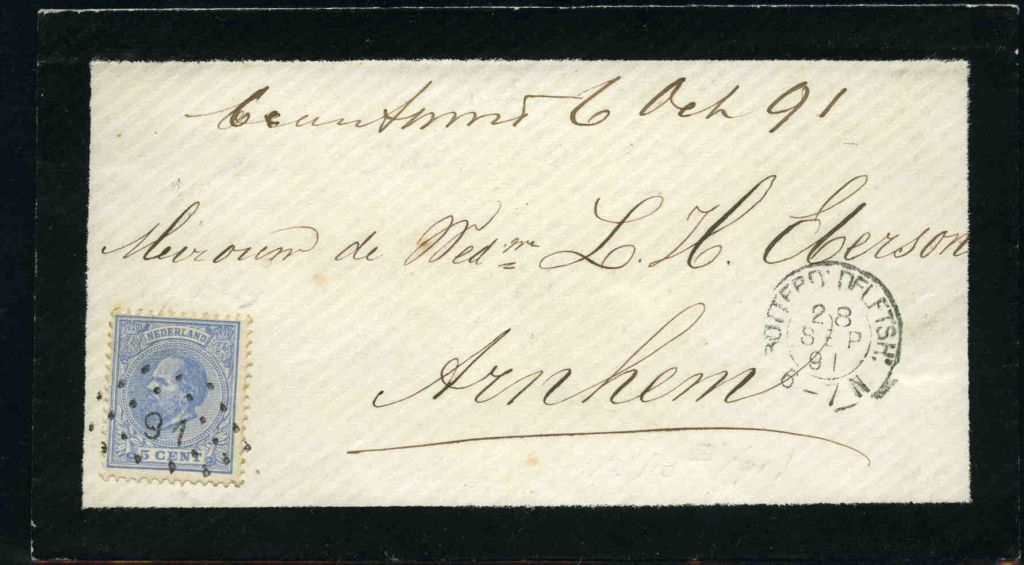 beantwoord 6 Oct 91
Mevrouw de Wed.ᵐᵉ L. H. Eberson
Arnhem
ROTTERD: DELFTSH:
28
SEP
91
6-7 N
NEDERLAND
91
5 CENT